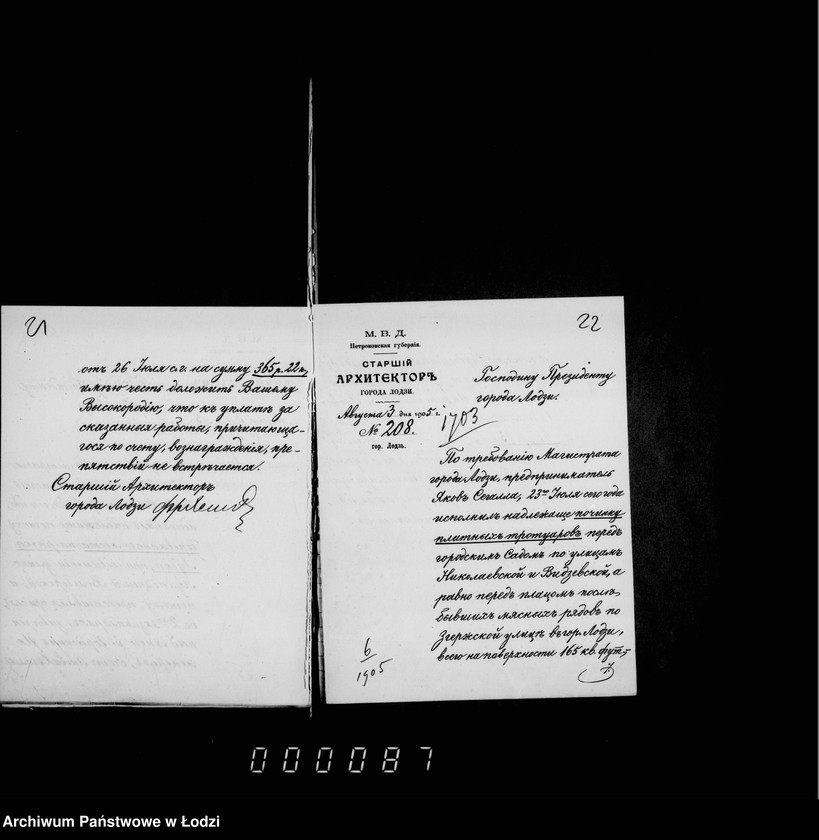 21
отъ 26 Іюля с.г. на сумму 365 р. 22 к.,
имѣю честь доложить Вашему
Высокородію, что къ уплатѣ за
сказанныя работы, причитающа-
гося по счету, вознагражденія, пре-
пятствій не встрѣчается.
Старшій Архитекторъ
города Лодзи
22
М. В. Д.
Петроковская губернія.
СТАРШІЙ
АРХИТЕКТОРЪ
ГОРОДА ЛОДЗИ.
Августа 3 дня 1905 г.
№ 208.
гор. Лодзь.
1703
Господину Президенту
города Лодзи.
По требованію Магистрата
города Лодзи, предприниматель
Яковъ Сегалла, 23го Іюля сего года
исполнилъ надлежаще починку
плитныхъ тротуаровъ передъ
городскимъ Садомъ по улицамъ
Николаевской и Видзевской, а
равно передъ плацомъ послѣ
бывшихъ мясныхъ рядовъ по
Згержской улицѣ въ гор. Лодзи,
всего на поверхности 165 кв. фут.
6
1905
000087
Archiwum Państwowe w Łodzi